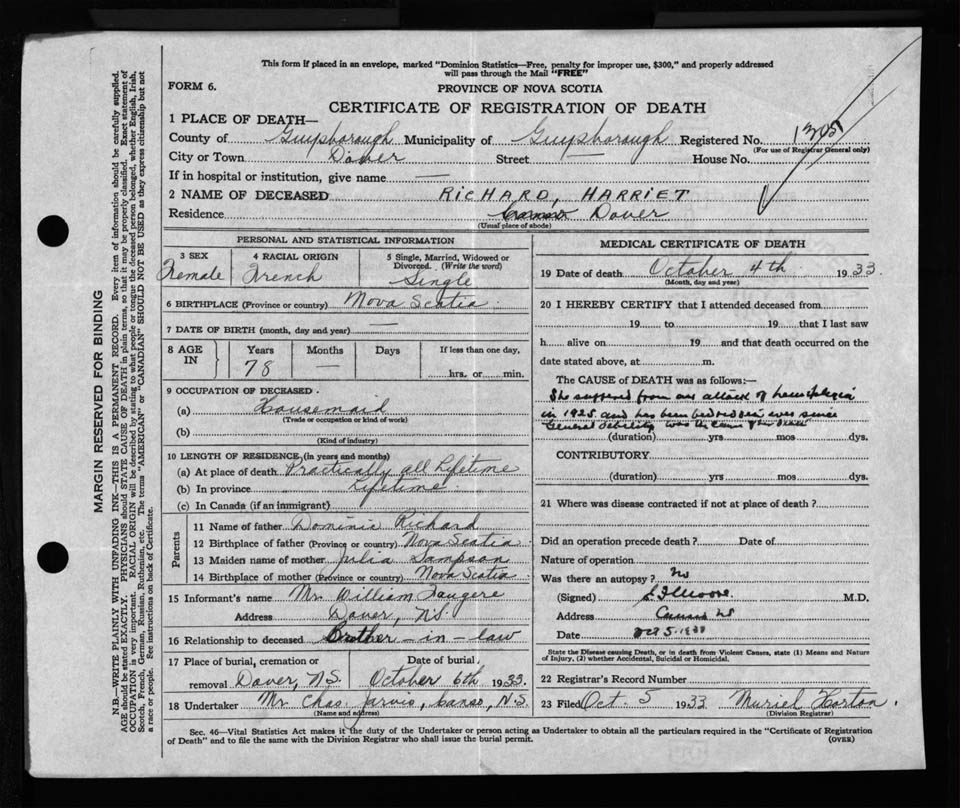 This form if placed in an envelope, marked "Dominion Statistics—Free, penalty for improper use, $300," and properly addressed
will pass through the Mail "FREE"
FORM 6.
PROVINCE OF NOVA SCOTIA
CERTIFICATE OF REGISTRATION OF DEATH
1 PLACE OF DEATH—
County of Guysborough Municipality of Guysborough Registered No. 1305
(For use of Registrar General only)
City or Town Dover Street — House No.
If in hospital or institution, give name —
2 NAME OF DECEASED RICHARD, HARRIET
Residence Dover
(Usual place of abode)
PERSONAL AND STATISTICAL INFORMATION
3 SEX Female
4 RACIAL ORIGIN French
5 Single, Married, Widowed or Divorced. (Write the word) Single
6 BIRTHPLACE (Province or country) Nova Scotia
7 DATE OF BIRTH (month, day and year) —
8 AGE IN Years Months Days If less than one day,
78 — hrs. or min.
9 OCCUPATION OF DECEASED.
(a) Housemaid
(Trade or occupation or kind of work)
(b)
(Kind of industry)
10 LENGTH OF RESIDENCE (in years and months)
(a) At place of death Practically all Lifetime
(b) In province Lifetime
(c) In Canada (if an immigrant)
Parents
11 Name of father Dominic Richard
12 Birthplace of father (Province or country) Nova Scotia
13 Maiden name of mother Julia Sampson
14 Birthplace of mother (Province or country) Nova Scotia
15 Informant's name Mr. William Faugere
Address Dover, N.S.
16 Relationship to deceased Brother-in-law
17 Place of burial, cremation or Date of burial,
removal Dover, N.S. October 6th 1933.
18 Undertaker Mr. Chas. Jarvis, Canso, N.S.
(Name and address)
MEDICAL CERTIFICATE OF DEATH
19 Date of death October 4th 1933.
(Month, day and year)
20 I HEREBY CERTIFY that I attended deceased from
19 to 19 that I last saw
h alive on 19 and that death occurred on the
date stated above, at m.
The CAUSE of DEATH was as follows:—
She suffered from an attack of hemiplegia
in 1925 and has been bedridden ever since
General debility was the cause of her death
(duration) yrs. mos. dys.
CONTRIBUTORY
(duration) yrs. mos. dys.
21 Where was disease contracted if not at place of death?
Did an operation precede death? Date of
Nature of operation
Was there an autopsy? No
(Signed) Moore M.D.
Address Canso NS
Date Oct 5. 1933
State the Disease causing Death, or in death from Violent Causes, state (1) Means and Nature
of Injury, (2) whether Accidental, Suicidal or Homicidal.
22 Registrar's Record Number
23 Filed Oct. 5 1933 Muriel Horton.
(Division Registrar)
Sec. 46—Vital Statistics Act makes it the duty of the Undertaker or person acting as Undertaker to obtain all the particulars required in the "Certificate of Registration
of Death" and to file the same with the Division Registrar who shall issue the burial permit.
(OVER)
MARGIN RESERVED FOR BINDING
N.B.—WRITE PLAINLY WITH UNFADING INK—THIS IS A PERMANENT RECORD. Every item of information should be carefully supplied.
AGE should be stated EXACTLY. PHYSICIANS should STATE CAUSE OF DEATH in plain terms, so that it may be properly classified. Exact statement of
OCCUPATION is very important. RACIAL ORIGIN will be described by stating to what people or tongue the deceased person belonged, whether English, Irish,
Scotch, French, German, Russian, Ruthenian, etc. The terms "AMERICAN" or "CANADIAN" SHOULD NOT BE USED as they express citizenship but not
a race or people. See instructions on back of Certificate.